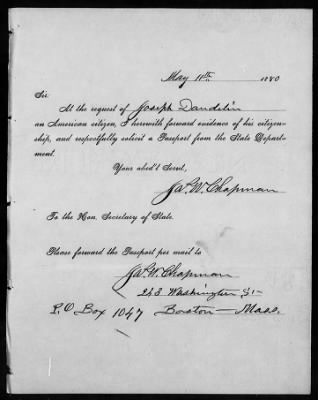 May 11th 1880
Sir:
At the request of Joseph Dandelin
an American citizen, I herewith forward evidence of his citizen-
ship, and respectfully solicit a Passport from the State Depart-
ment.
Your obed't Servt,
Jas. W. Chapman
To the Hon. Secretary of State.
Please forward the Passport per mail to
Jas. W. Chapman
Washington St
P.O Box 1047 Boston — Mass.